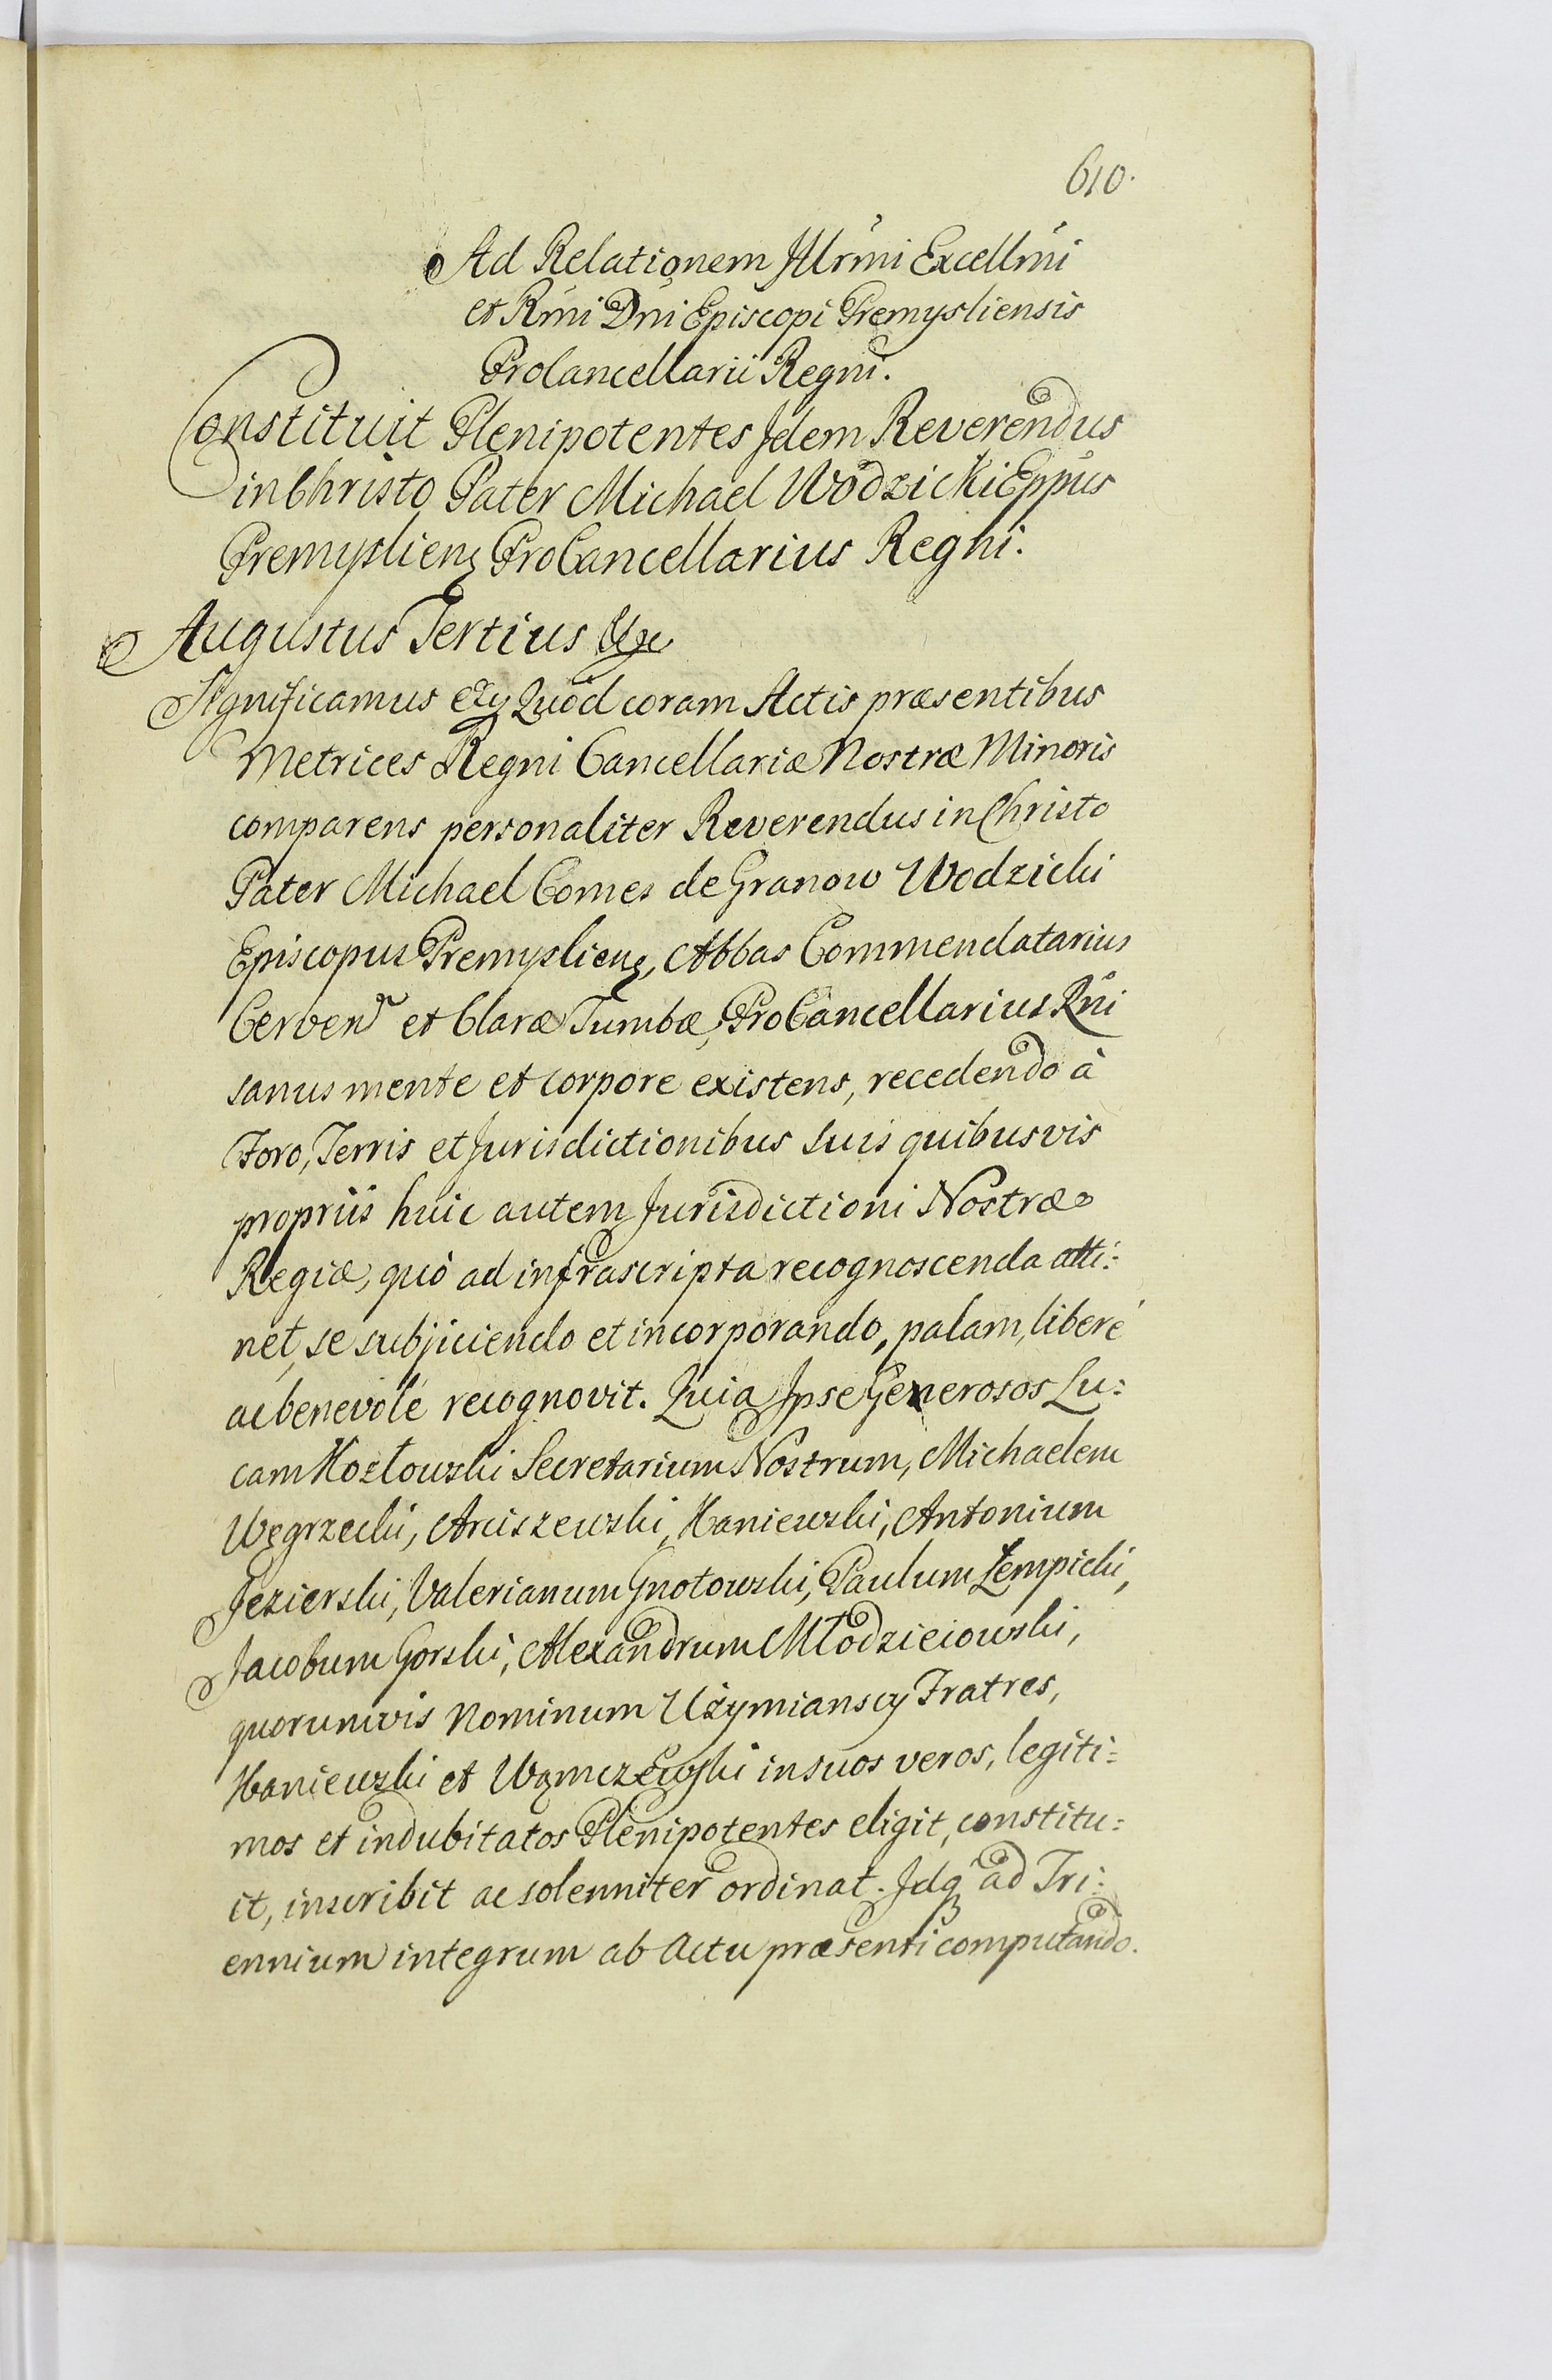 610.
Ad Relationem Illrmi Excellmi
et Rmi Dni Episcopi Premysliensis
ProCancellarii Regni.
Constituit Plenipotentes Idem Reverendus
in Christo Pater Michael Wodzicki Eppus
Premysliens ProCancellarius Regni.
Augustus Tertius &c
Significamus &c Quod coram Actis præsentibus
Metrices Regni Cancellariæ Nostræ Minoris
comparens personaliter Reverendus in Christo
Pater Michael Comes de Granow Wodzicki
Episcopus Premysliens, Abbas Commendatarius
Cerven et Claræ Tumbæ, ProCancellarius Rni
sanus mente et corpore existens, recedendo à
Foro, Terris et Jurisdictionibus suis quibusvis
propriis huic autem Jurisdictioni Nostræ
Regiæ, quò ad infrascripta recognoscenda atti:
net, se subjiciendo et incorporando, palam, liberé
ac benevolé recognovit. Quia Ipse Generosos Lu:
cam Kozłowski Secretarium Nostrum, Michaelem
Węgrzecki, Arciszewski, Kaniewski, Antonium
Jezierski, Valerianum Gnotowski, Paulum Łempicki,
Jacobum Gorski, Alexandrum Młodzieiowski,
quorumvis Nominum Użymianscy Fratres,
Kaniewski et Wąmczewski in suos veros, legiti:
mos et indubitatos Plenipotentes eligit, constitu:
it, inscribit ac solenniter ordinat. Idq ad Tri:
ennium integrum ab Actu præsenti computando.